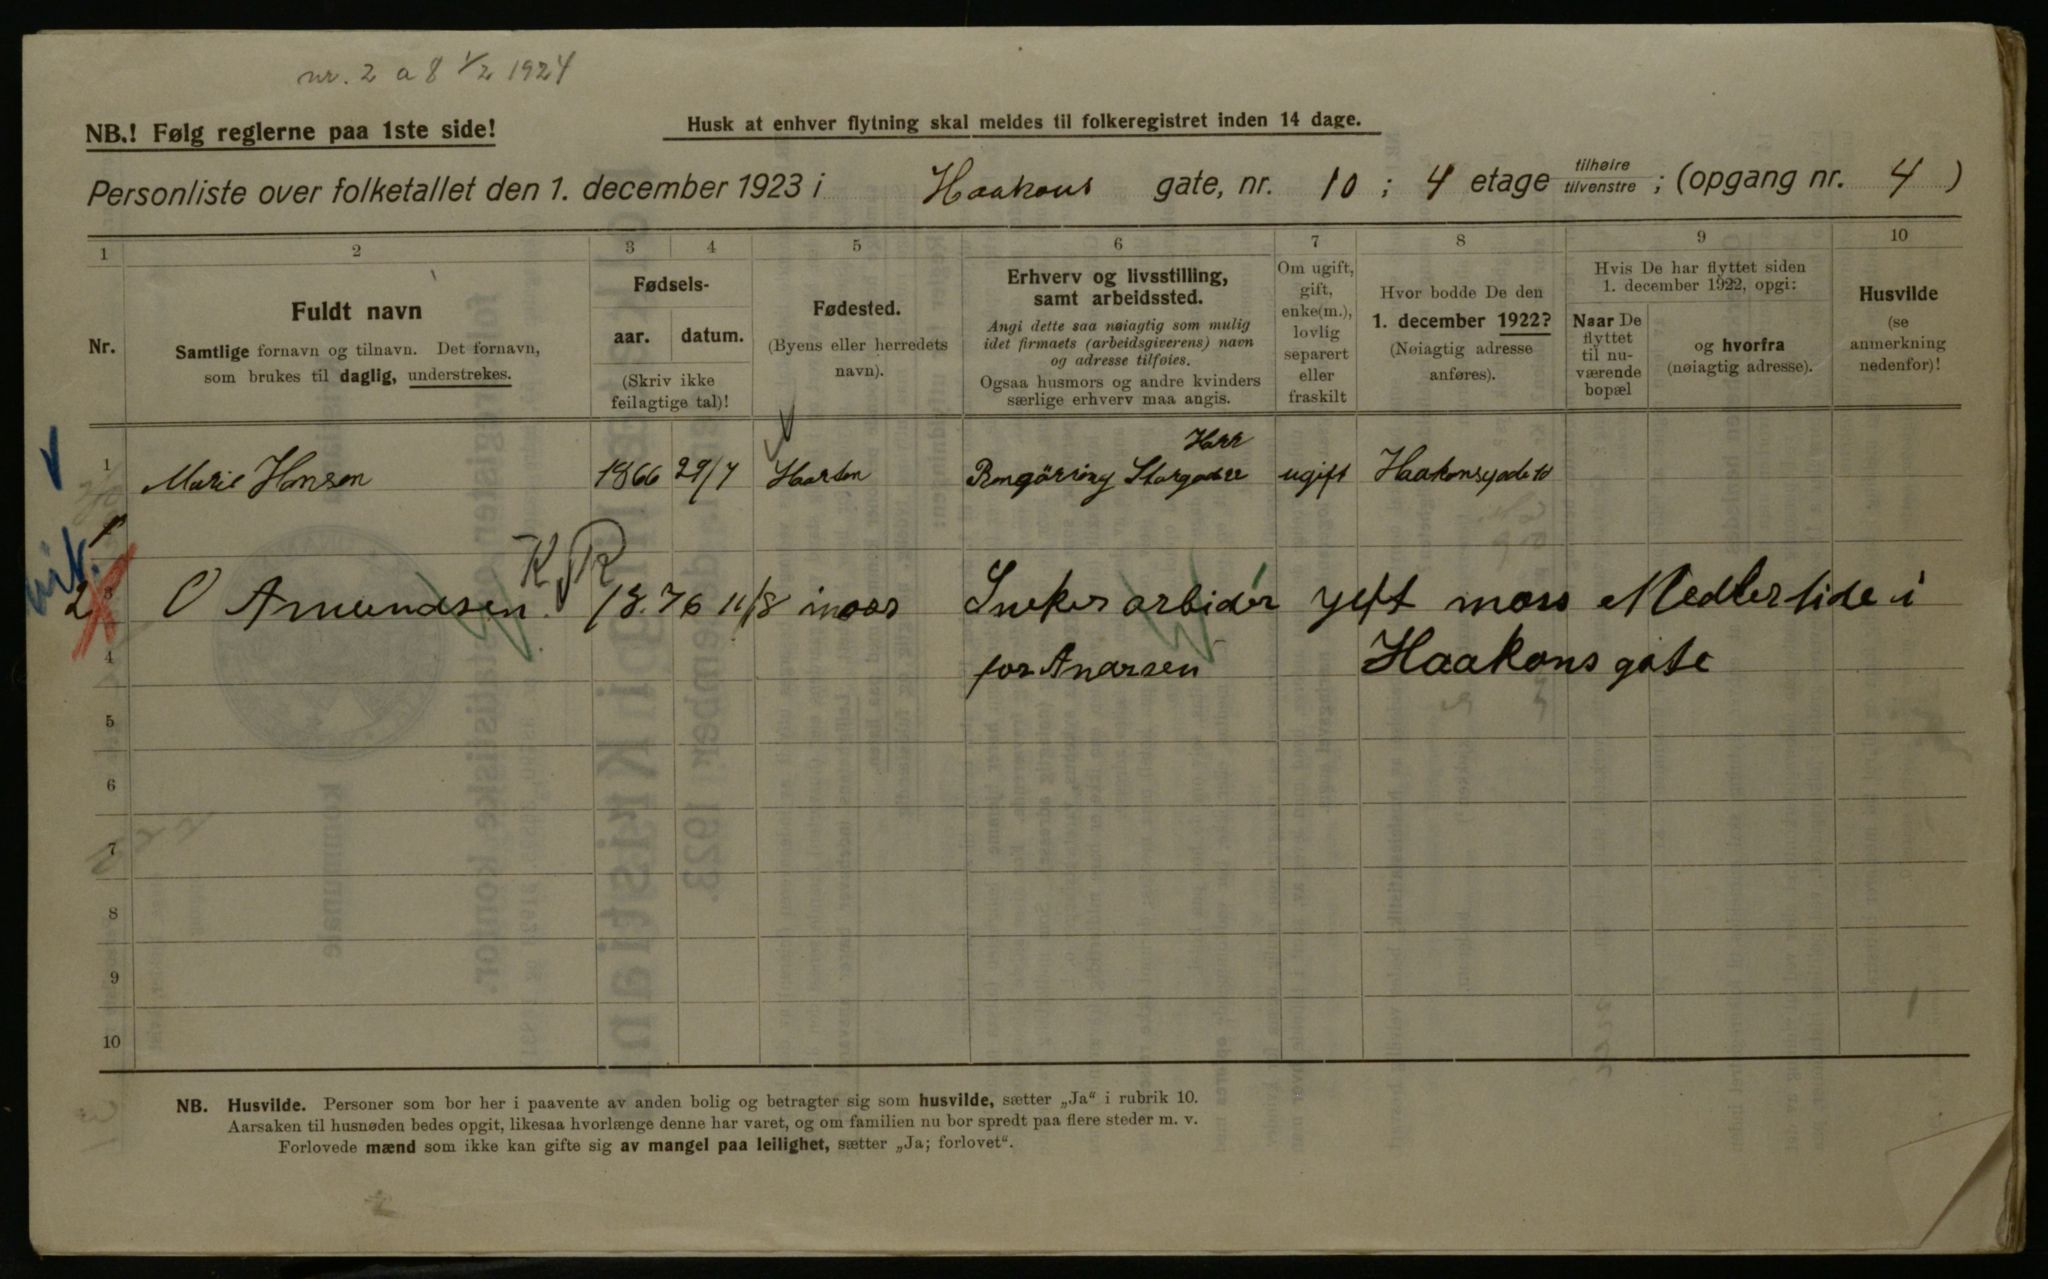 nr. 2 a 8 1/2 1924
NB.! Følg reglerne paa 1ste side!
Husk at enhver flytning skal meldes til folkeregistret inden 14 dage.
Personliste over folketallet den 1. december 1923 i Haakons gate, nr. 10 ; 4 etage tilhøire tilvenstre ; (opgang nr. 4 )
1 2 3 4 5 6 7 8 9 10
Nr.
Fuldt navn
Samtlige fornavn og tilnavn. Det fornavn,
som brukes til daglig, understrekes.
Fødsels-
aar. datum.
(Skriv ikke
feilagtige tal)!
Fødested.
(Byens eller herredets
navn).
Erhverv og livsstilling,
samt arbeidssted.
Angi dette saa nøiagtig som mulig
idet firmaets (arbeidsgiverens) navn
og adresse tilføies.
Ogsaa husmors og andre kvinders
særlige erhverv maa angis.
Om ugift,
gift,
enke(m.),
lovlig
separert
eller
fraskilt
Hvor bodde De den
1. december 1922?
(Nøiagtig adresse
anføres).
Hvis De har flyttet siden
1. december 1922, opgi:
Naar De
flyttet
til nu-
værende
bopæl
og hvorfra
(nøiagtig adresse).
Husvilde
(se
anmerkning
nedenfor)!
1 Marie Hansen 1866 29/7 Rengöring Storgade ugift Haakonsgade 10
K.R
2 O Amundsen 1876 11/8 moss arbidér gift moss Medlertide i
4 for Haakons gate
5
6
7
8
9
10
NB. Husvilde. Personer som bor her i paavente av anden bolig og betragter sig som husvilde, sætter „Ja“ i rubrik 10.
Aarsaken til husnøden bedes opgit, likesaa hvorlænge denne har varet, og om familien nu bor spredt paa flere steder m. v.
Forlovede mænd som ikke kan gifte sig av mangel paa leilighet, sætter „Ja; forlovet“.